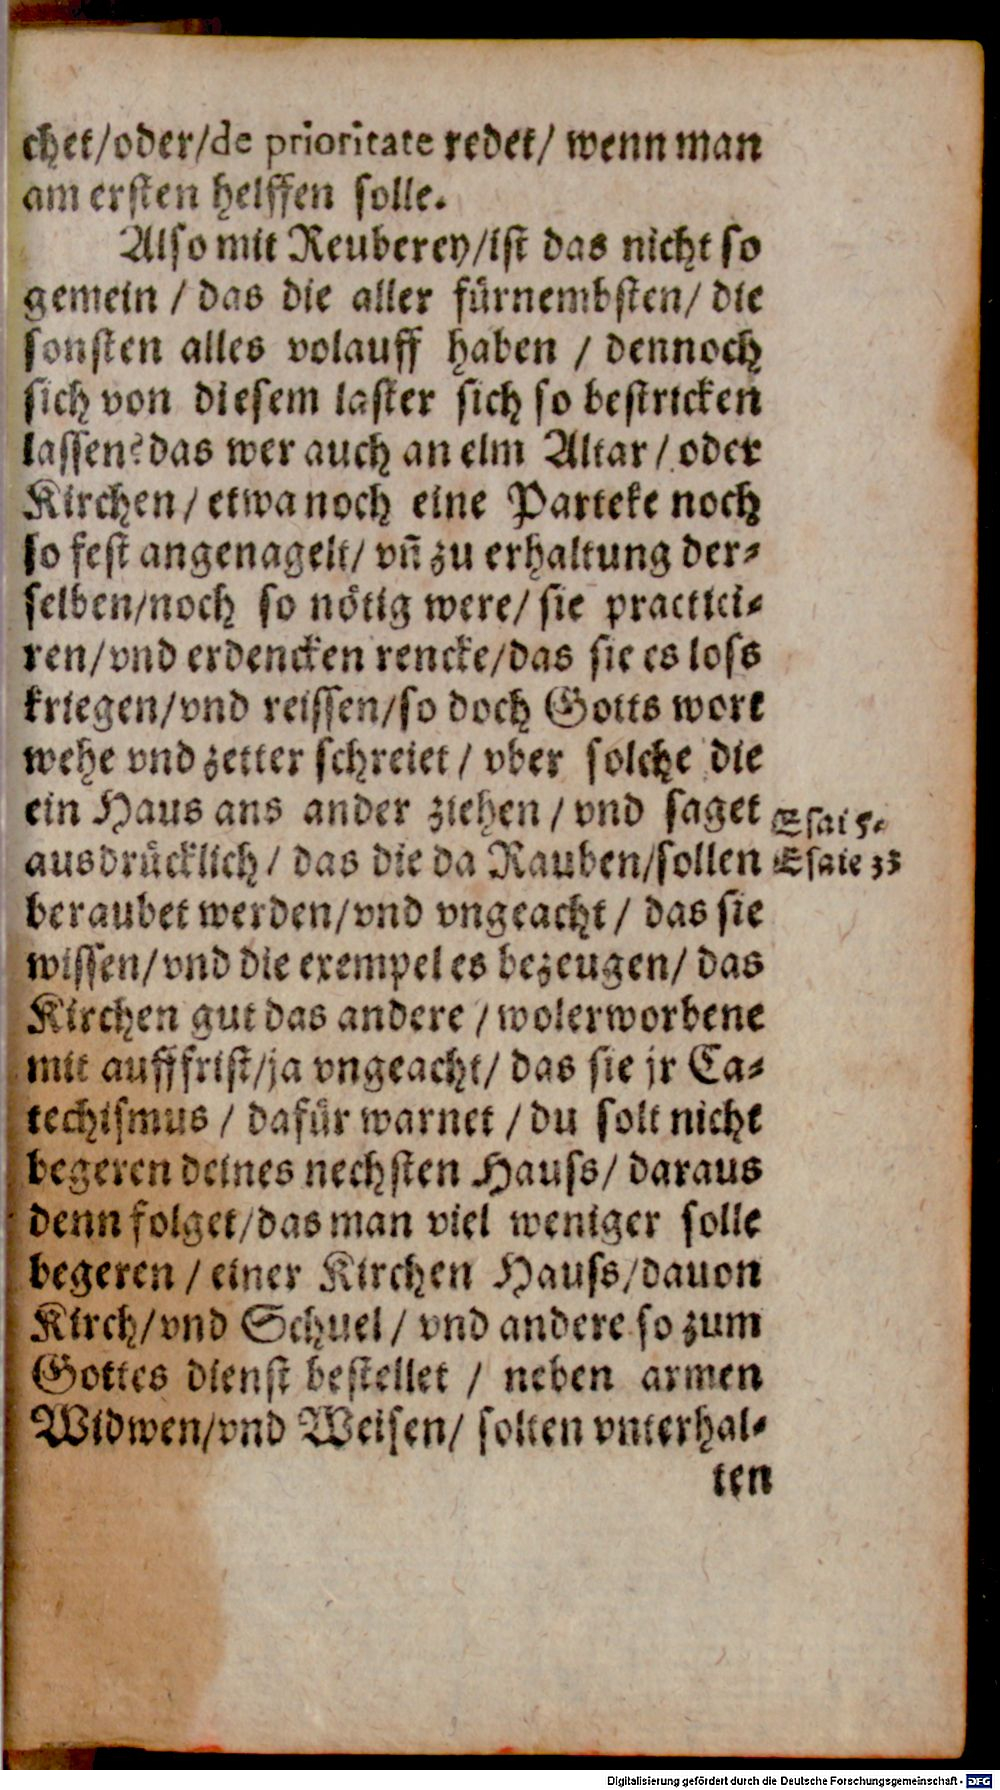 chet/oder/de prioritate redet/ wenn man
am ersten helffen solle.
Also mit Reuberey/ist das nicht so
gemein / das die aller fürnembsten/ die
sonsten alles volauff haben / dennoch
sich von diesem laster sich so bestricken
lassen? das wer auch an eim Altar / oder
Kirchen / etwa noch eine Parteke noch
so fest angenagelt/ vn̄ zu erhaltung der-
selben/noch so nötig were/ sie practici-
ren/vnd erdencken rencke/das sie es loss
kriegen/vnd reissen/so doch Gotts wort
wehe vnd zetter schreiet / vber solche die
ein Haus ans ander ziehen / vnd saget
Esai 5.
ausdrücklich / das die da Rauben/sollen
Esaie 33
beraubet werden/vnd vngeacht / das sie
wissen/vnd die exempel es bezeugen/ das
Kirchen gut das andere / wolerworbene
mit aufffrist/ja vngeacht/ das sie jr Ca-
techismus / dafür warnet / du solt nicht
begeren deines nechsten Hauss/ daraus
denn folget/das man viel weniger solle
begeren / einer Kirchen Hauss/dauon
Kirch/vnd Schuel / vnd andere so zum
Gottes dienst bestellet / neben armen
Widwen/vnd Weisen/ solten vnterhal-
ten
Digitalisierung gefördert durch die Deutsche Forschungsgemeinschaft - DFG